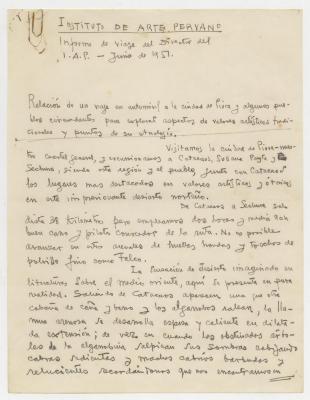 INSTITUTO DE ARTE PERUANO
Informe de viaje del Director del
I.A.P. – Junio de 1951.
Relación de un viaje en automóvil a la ciudad de Piura y algunos pue-
blos circundantes para explorar aspectos de valores artísticos tradi-
cionales y puntos de su etnología.
Visitamos la ciudad de Piura nues-
tro cuartel general, y excursionamos a Catacaos, Sesane y
Sechura, siendo esta región y el pueblo junto con Catacaos
los lugares mas destacados en valores artísticos y étnicos
en este impresionante desierto norteño.
De Catacaos a Sechura sola
dista 38 kilómetros pero empleamos dos horas y media con
buen carro y piloto conocedor de la ruta. No es posible
avanzar en estos arenales de huellas hondas y topochos de
polvillo fino como talco.
La sensación de desierto imaginado en
literatura sobre el medio oriente, aquí se presenta en pura
realidad. Saliendo de Catacaos aparecen una que otra
cabaña de caña y barro y los algarrobos ralean, la lla-
nura arenosa se desarrolla espesa y caliente en dilata-
da extensión; de vez en cuando los obstinados árbo-
les de la algarrobia salpican sus sombras cobijando
cabras sedientas y machos cabríos barbudos y
relucientes recordándonos que nos encontramos en